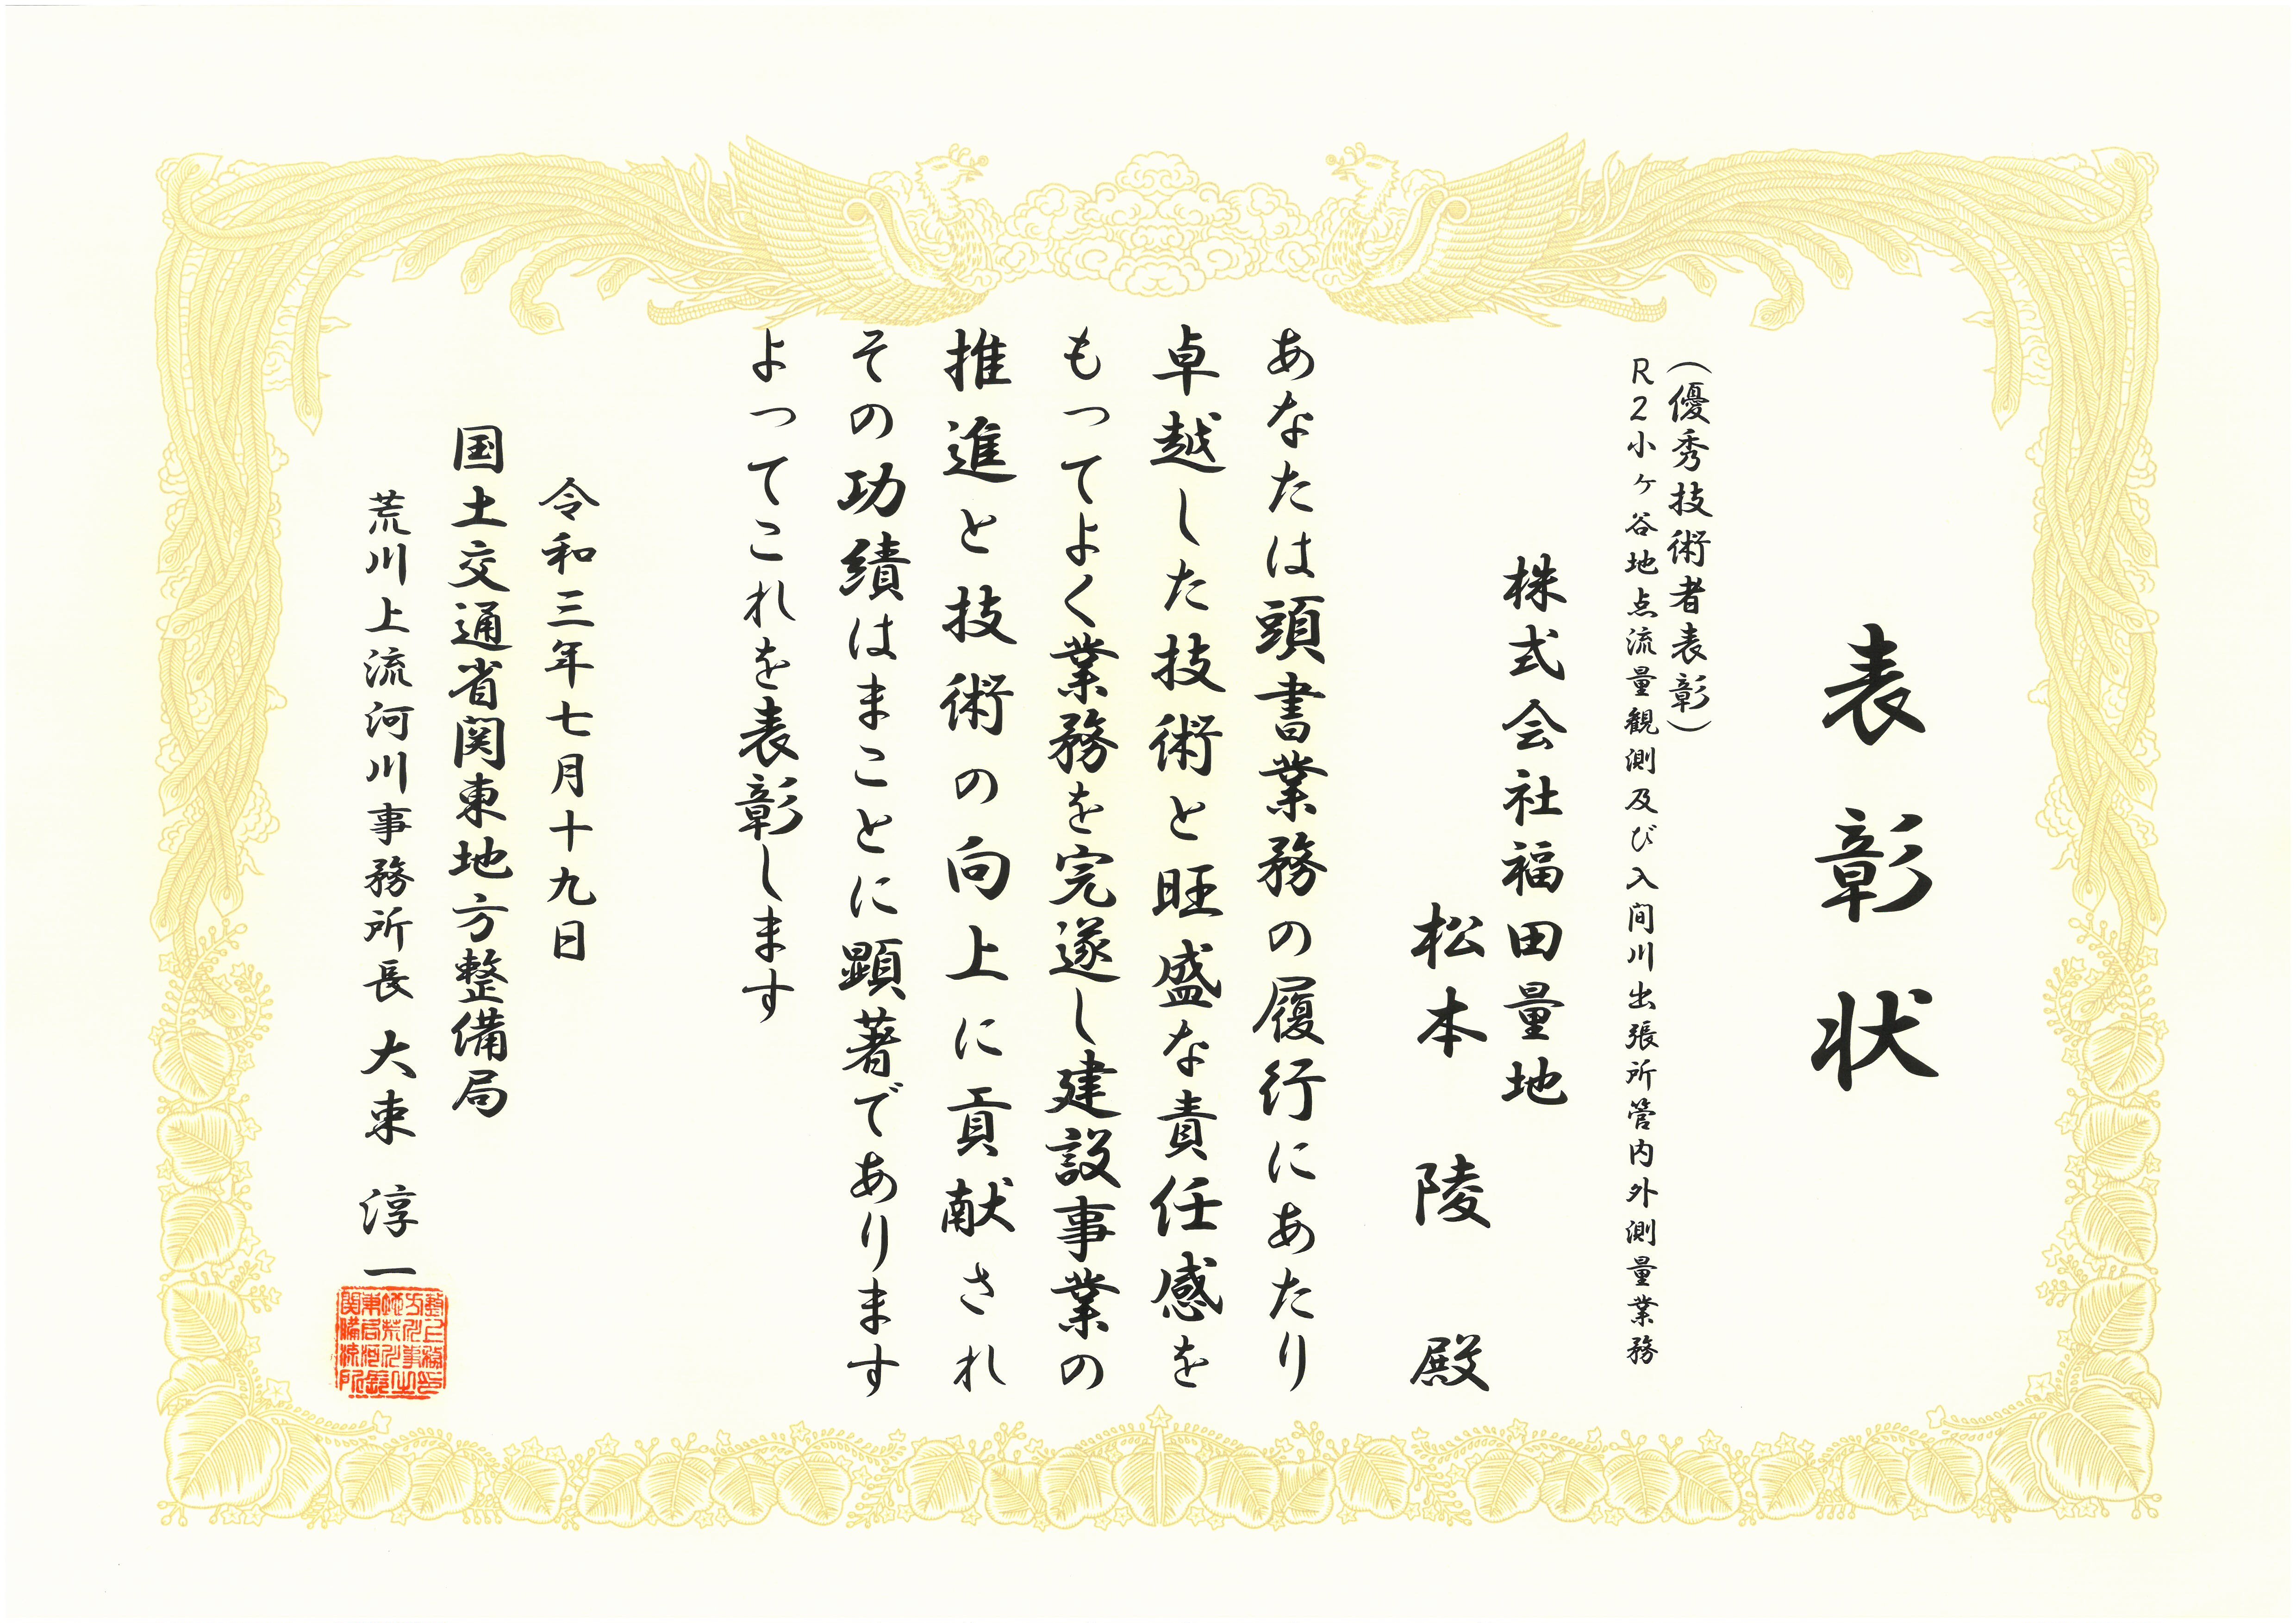 表彰状
(優秀技術者表彰)
R2小ヶ谷地点流量観測及び入間川出張所管内外測量業務
株式会社福田量地
松本 陵 殿
あなたは頭書業務の履行にあたり
卓越した技術と旺盛な責任感を
もってよく業務を完遂し建設事業の
推進と技術の向上に貢献され
その功績はまことに顕著であります
よってこれを表彰します
令和三年七月十九日
国土交通省関東地方整備局
荒川上流河川事務所長 大束 淳一